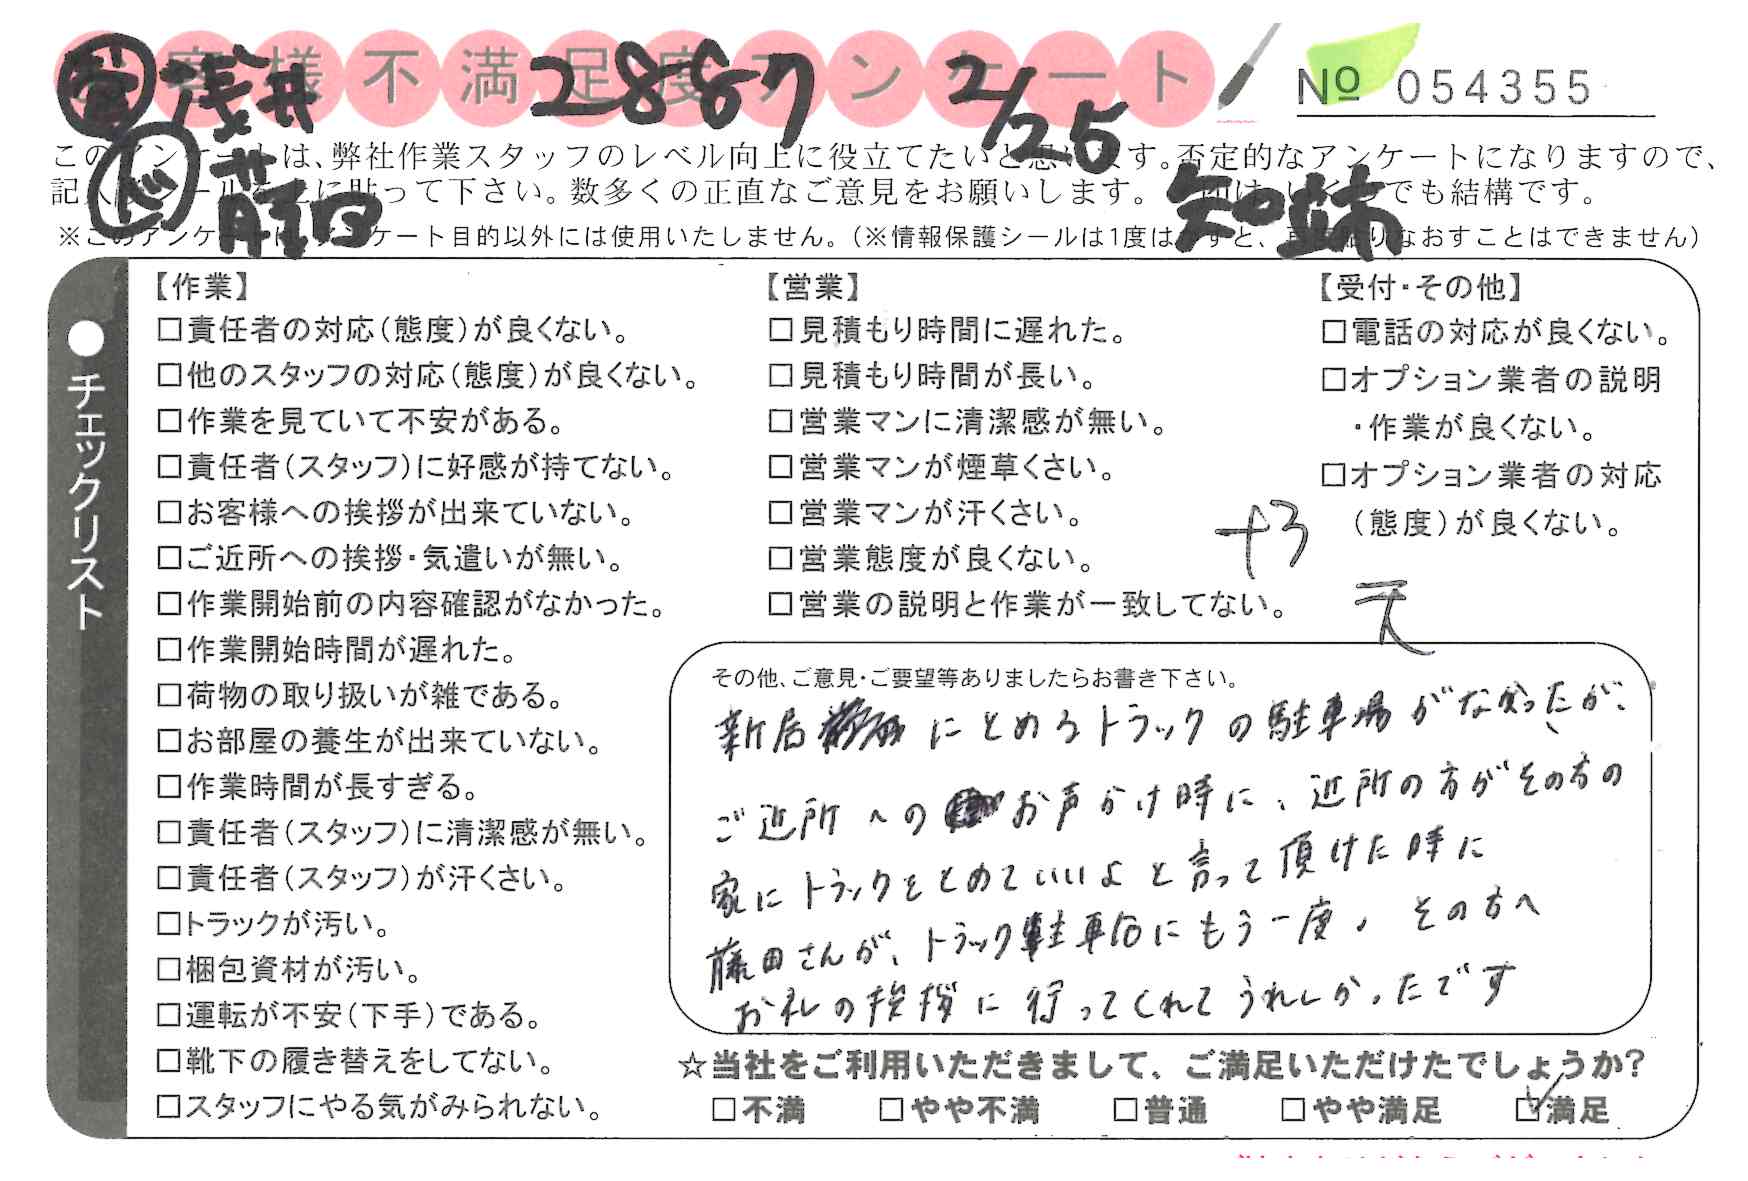 お客様不満足度アンケート
№ 054355
営 浅井 2887 2/25
ド 藤田
このアンケートは、弊社作業スタッフのレベル向上に役立てたいと思います。否定的なアンケートになりますので、
記入後シールを上に貼って下さい。数多くの正直なご意見をお願いします。 でも結構です。
※このアンケートは、アンケート目的以外には使用いたしません。(※情報保護シールは1度はがすと、再度貼りなおすことはできません)
●チェックリスト
【作業】
□責任者の対応(態度)が良くない。
□他のスタッフの対応(態度)が良くない。
□作業を見ていて不安がある。
□責任者(スタッフ)に好感が持てない。
□お客様への挨拶が出来ていない。
□ご近所への挨拶・気遣いが無い。
□作業開始前の内容確認がなかった。
□作業開始時間が遅れた。
□荷物の取り扱いが雑である。
□お部屋の養生が出来ていない。
□作業時間が長すぎる。
□責任者(スタッフ)に清潔感が無い。
□責任者(スタッフ)が汗くさい。
□トラックが汚い。
□梱包資材が汚い。
□運転が不安(下手)である。
□靴下の履き替えをしてない。
□スタッフにやる気がみられない。
【営業】
□見積もり時間に遅れた。
□見積もり時間が長い。
□営業マンに清潔感が無い。
□営業マンが煙草くさい。
□営業マンが汗くさい。
□営業態度が良くない。
□営業の説明と作業が一致してない。
【受付・その他】
□電話の対応が良くない。
□オプション業者の説明
・作業が良くない。
□オプション業者の対応
(態度)が良くない。
+3
その他、ご意見・ご要望等ありましたらお書き下さい。
新居にとめるトラックの駐車場がなかったが、
ご近所へのお声かけ時に、近所の方がその方の
家にトラックをとめていいよと言って頂けた時に
藤田さんが、トラック駐車后にもう一度、その方へ
お礼の挨拶に行ってくれてうれしかったです
☆当社をご利用いただきまして、ご満足いただけたでしょうか?
□不満 □やや不満 □普通 □やや満足 ☑満足